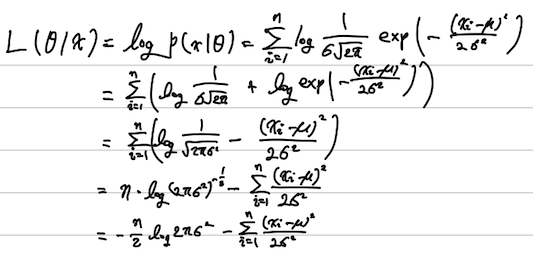 L(θ/x) = log p(x|θ) = Σ_{i=1}^{n} log 1/(σ√2π) exp(-(xi-μ)²/2σ²)
= Σ_{i=1}^{n} (log 1/(σ√2π) + log exp(-(xi-μ)²/2σ²))
= Σ_{i=1}^{n} (log 1/√2πσ² - (xi-μ)²/2σ²)
= n · log(2πσ²)^{-1/2} - Σ_{i=1}^{n} (xi-μ)²/2σ²
= -n/2 log 2πσ² - Σ_{i=1}^{n} (xi-μ)²/2σ²